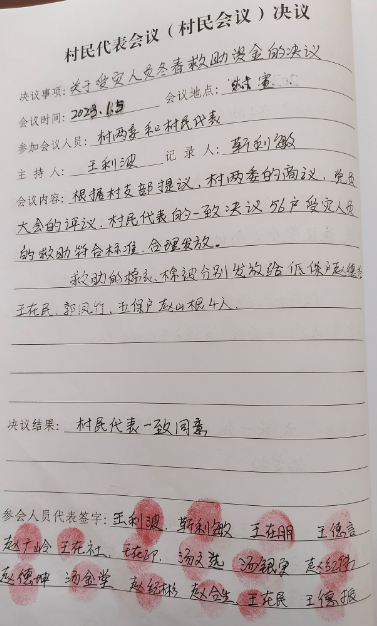 村民代表会议（村民会议）决议
决议事项：关于受灾人员冬春救助资金的决议
会议时间：2023.1.5 会议地点：
参加会议人员：村两委和村民代表
主持人：王利波 记录人：靳利敏
会议内容：根据村支部提议，村两委的商议，党员
大会的评议，村民代表的一致决议 56户受灾人员
的救助符合标准，合理发放。
救助的棉衣、棉被分别发放给低保户赵
王在民、郭凤竹，五保户赵山根4人。
决议结果：村民代表一致同意
参会人员代表签字：王利波 靳利敏 王在朋 王德言
赵广岭 王在社 王在印 汤文选 汤银更 赵纪
赵德坤 汤金堂 赵纪彬 赵合生 王在民 王德报